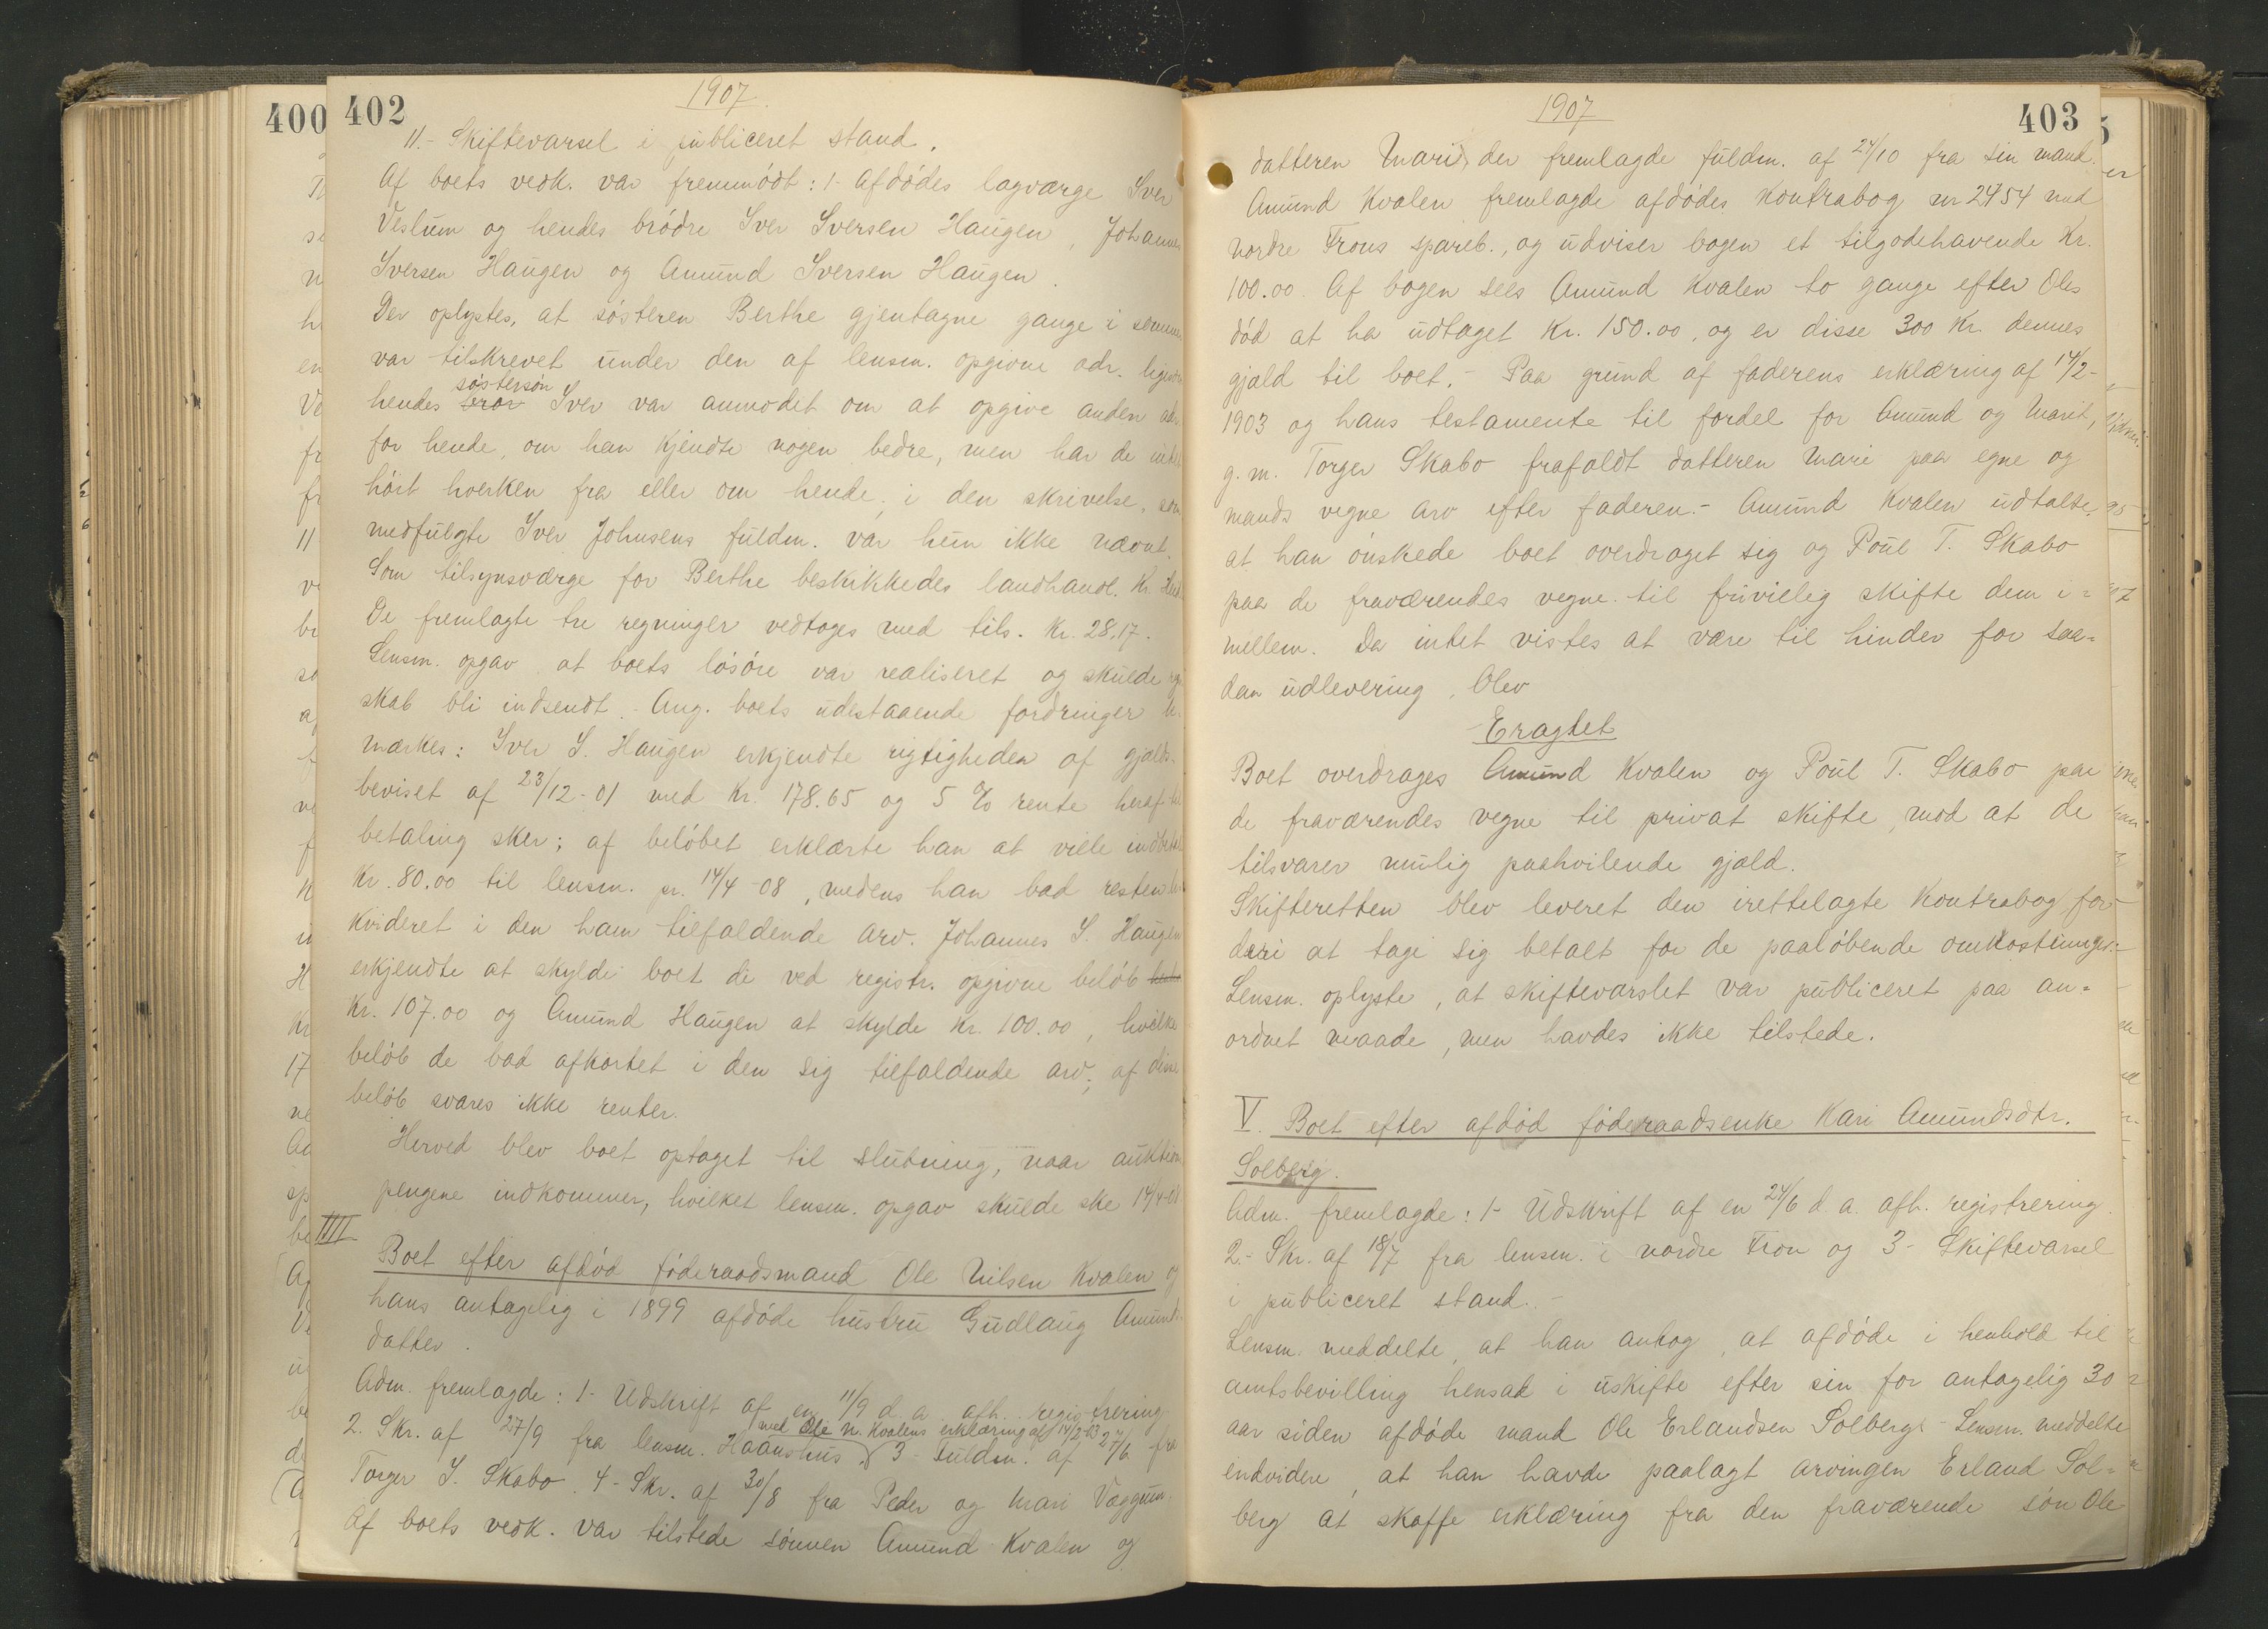 402
1907
11.- Skiftevarsel i publiceret stand.
Af boets vedk. var fremmødt: 1- Afdødes lagværge Iver
Veslum og hendes brødre Iver Iversen Haugen, Johannes
Iversen Haugen og Amund Iversen Haugen.
Der oplystes, at søsteren Berthe gjentagne gange i
var tilskrevet under den af lensm. opgivne adr.
søstersøn
hendes bror Iver var anmodet om at opgive anden adr.
for hende, om han kjendte nogen bedre, men har de intet
hørt hverken fra eller om hende; i den skrivelse, som
medfulgte Iver Johnsens fuldm. var hun ikke nævnt.
Som tilsynsværge for Berthe beskikkedes landhandl. Kr.
De fremlagte tre regninger vedtoges med tils. Kr. 28.17.
Lensm. opgav at boets løsøre var realiseret og skulde
skab bli indsendt. - Ang. boets udestaaende fordringer be-
mærkes: Iver I. Haugen erkjendte rigtigheden af gjælds-
beviset af 23/12-01 med Kr. 178.65 og 5 % rente heraf til
betaling sker; af beløbet erklærte han at ville indbetale
Kr. 80.00 til lensm. pr. 14/4-08, medens han bad resten li-
kvideret i den ham tilfaldende arv. Johannes I. Haugen
erkjendte at skylde boet de ved registr. opgivne beløb
Kr. 107.00 og Amund Haugen at skylde Kr. 100.00, hvilke
beløb de bad afkortet i den sig tilfaldende arv; af disse
beløb svares ikke renter.
Herved blev boet optaget til slutning, naar auktions
pengene indkommer, hvilket lensm. opgav skulde ske 14/4-08
IIII
Boet efter afdød føderaadsmand Ole Nilsen Kvalen og
hans antagelig i 1899 afdøde hustru Gudlaug Amunds-
datter.
Adm. fremlagde: 1- Udskrift af en 11/9 d. a. afh. registrering
med Ole N. Kvalens erklæring af 14/2-03
2. Skr. af 27/9 fra lensm. Haanshus. 3- Fuldm. af 27/6 fra
Torger I. Skabo. 4- Skr. af 30/8 fra Peder og Mari Vaggum.
Af boets vedk. var tilstede sønnen Amund Kvalen og
1907
403
datteren Mari, der fremlagde fuldm. af 24/10 fra sin mand.
Amund Kvalen fremlagde afdødes Kontrabog nr 2454 med
nordre Frons spareb., og udviser bogen et tilgodehavende Kr.
100.00. Af bogen sees Amund Kvalen to gange efter Oles
død at ha udtaget Kr. 150.00, og er disse 300 Kr. dennes
gjæld til boet.- Paa grund af faderens erklæring af 14/2-
1903 og hans testamente til fordel for Amund og Marit,
g. m. Torger Skabo frafaldt datteren Mari paa egne og
mands vegne arv efter faderen.- Amund Kvalen udtalte,
at han ønskede boet overdraget sig og Poul T. Skabo
paa de fraværendes vegne til frivillig skifte dem i=
mellem. Da intet vistes at være til hinder for saa=
dan udlevering, blev
Eragtet
Boet overdrages Amund Kvalen og Poul T. Skabo paa
de fraværendes vegne til privat skifte, mod at de
tilsvarer mulig paahvilende gjæld.
Skifteretten blev leveret den irettelagte Kontrabog for
deri at tage sig betalt for de paaløbende omkostninger.-
Lensm. oplyste, at skiftevarslet var publiceret paa an=
ordnet maade, men havdes ikke tilstede.
V. Boet efter afdød føderaadsenke Kari Amundsdtr.
Solberg.
Adm. fremlagde: 1- Udskrift af en 24/6 d. a. afh. registrering.
2.- Skr. af 18/7 fra lensm. i nordre Fron og 3- Skiftevarsel
i publiceret stand.-
Lensm. meddelte, at han antog, at afdøde i henhold til
amtsbevilling hensad i uskifte efter sin for antagelig 30
aar siden afdøde mand Ole Erlandsen Solberg.- Lensm. meddelte
endvidere, at han havde paalagt arvingen Erland Sol=
berg at skaffe erklæring fra den fraværende søn Ole
400